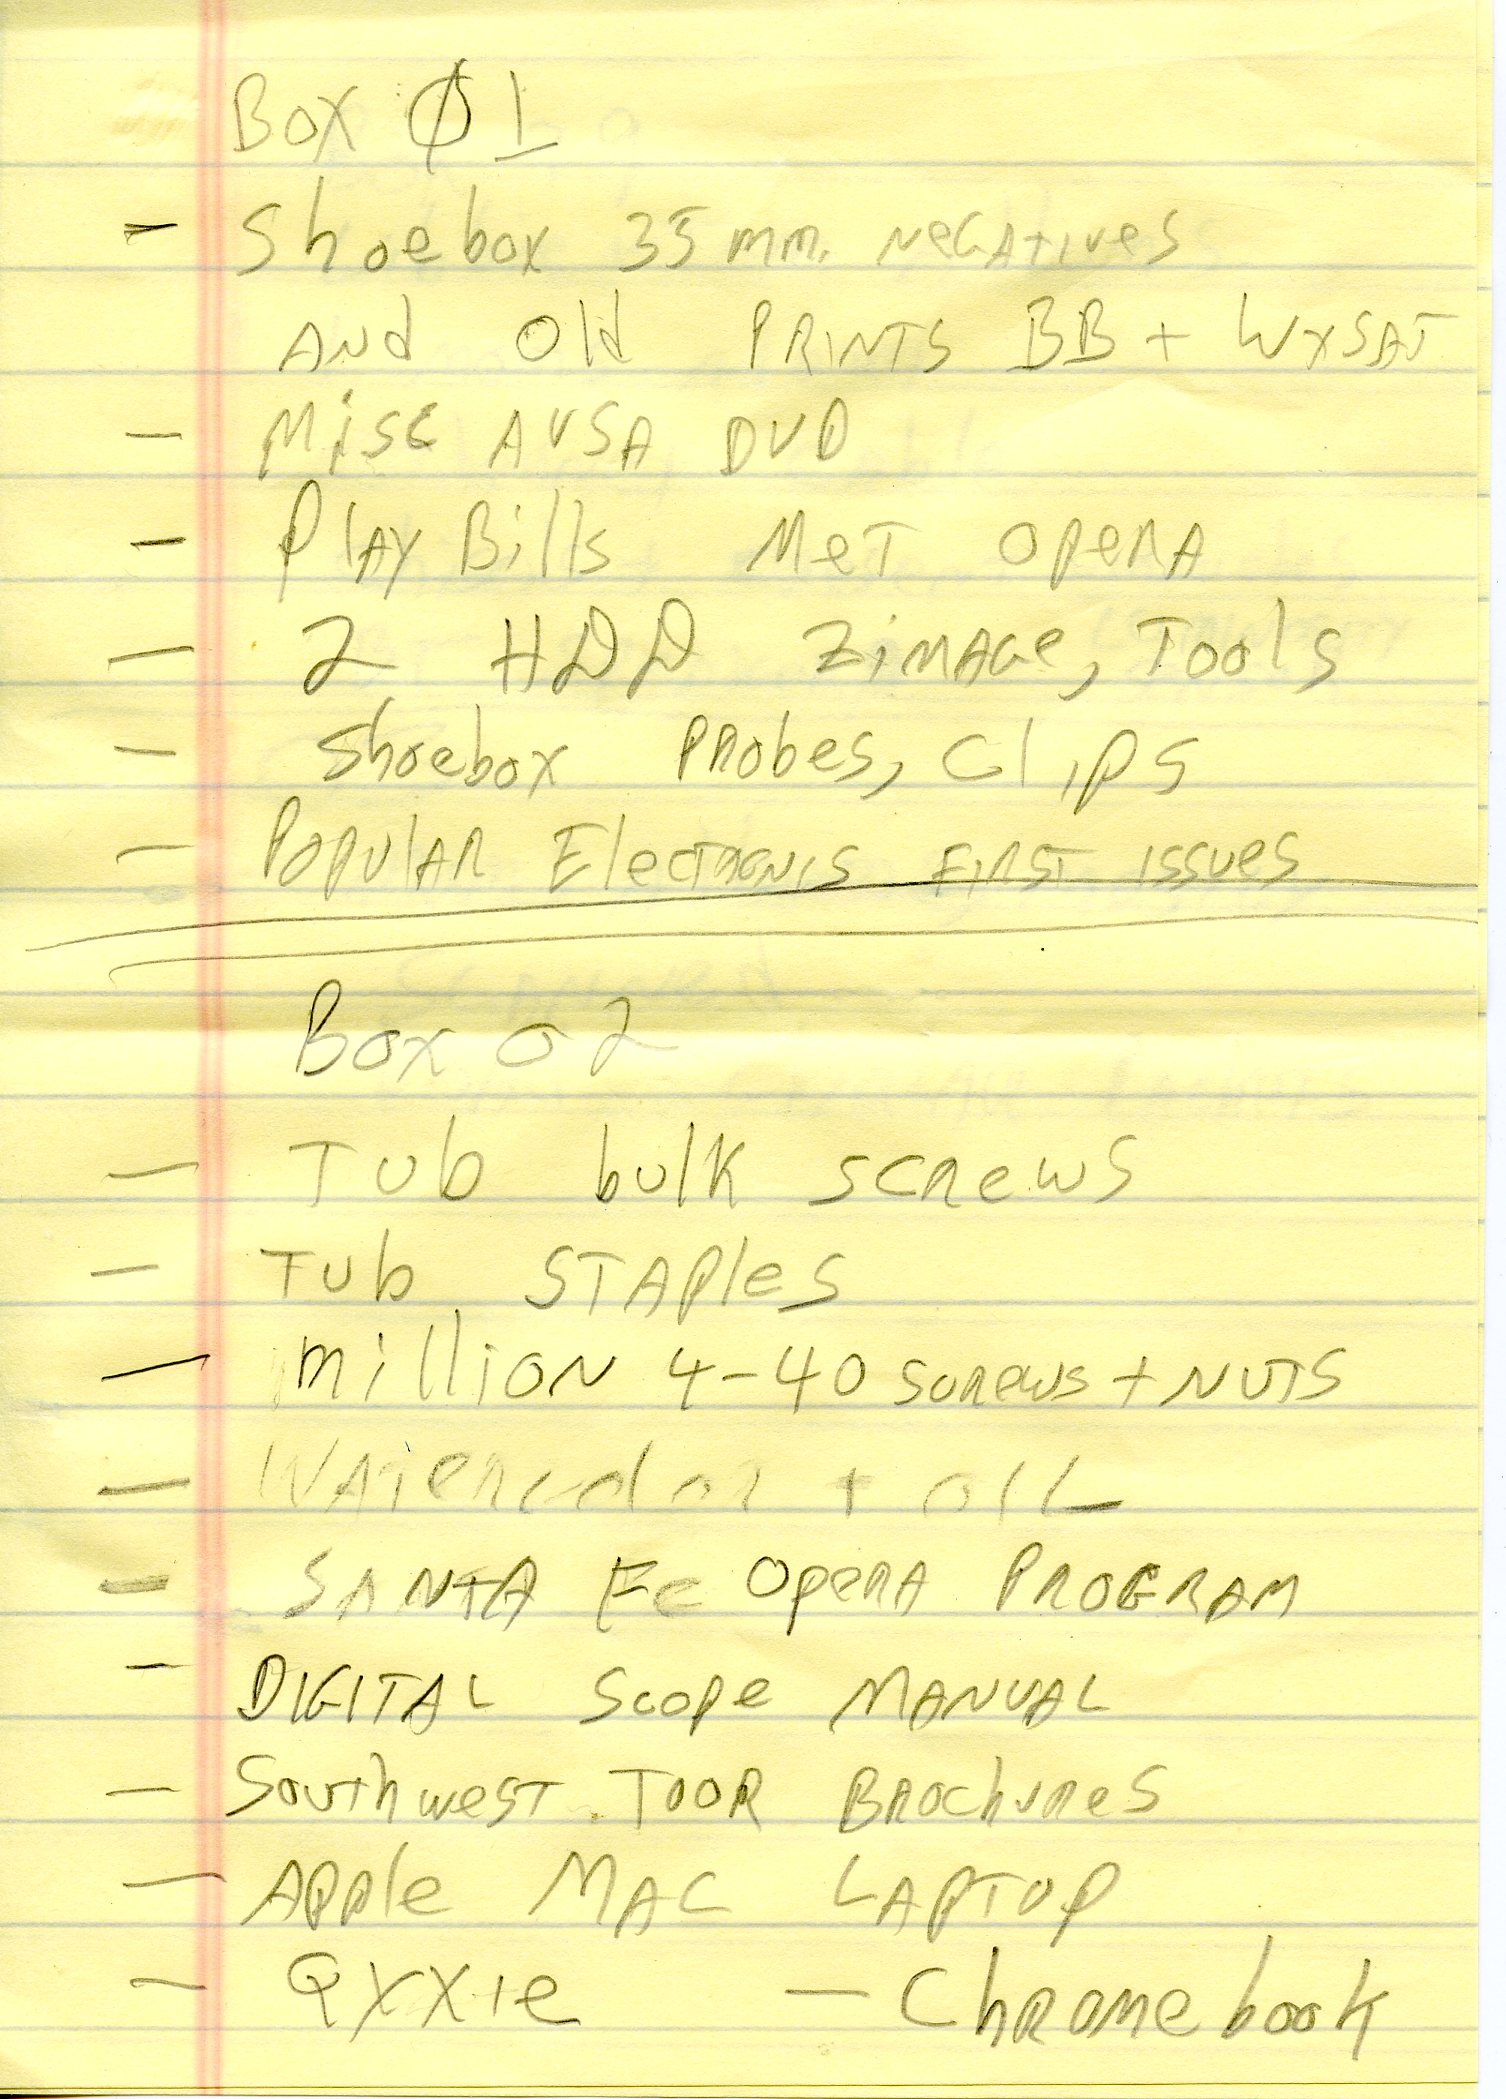 Box Ø1
- Shoebox 35mm. Negatives
And Old PRINTS BB + WXSAT
- Misc AVSA DVD
- Play Bills Met Opera
- 2 HDD Zimage, Tools
- Shoebox Probes, Clips
- Popular Electronis First Issues
Box 02
- Tub bulk screws
- Tub STAPles
- million 4-40 screws + NUTS
- Watercolor + oil
- SANTA Fe Opera PROGRAM
- DIGITAL Scope MANUAL
- Southwest Toor Brochures
- Apple MAC LAPTOP
- QXXie - Chromebook